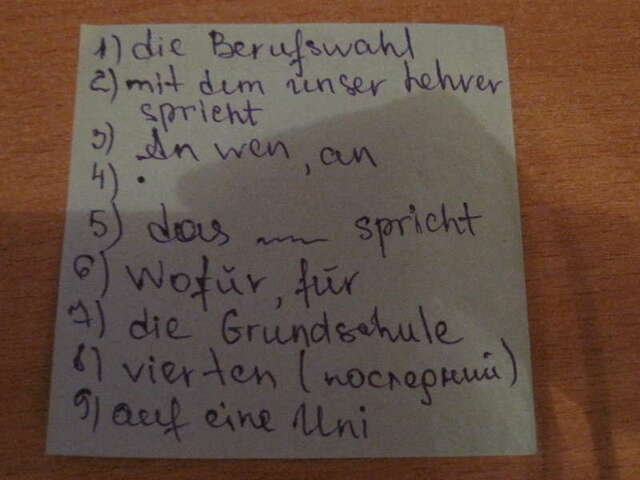 1) die Berufswahl
2) mit dem unser Lehrer
spricht
3) An wen, an
4) •
5) das ___ spricht
6) Wofür, für
7) die Grundschule
8) vierten (последний)
9) auf eine Uni